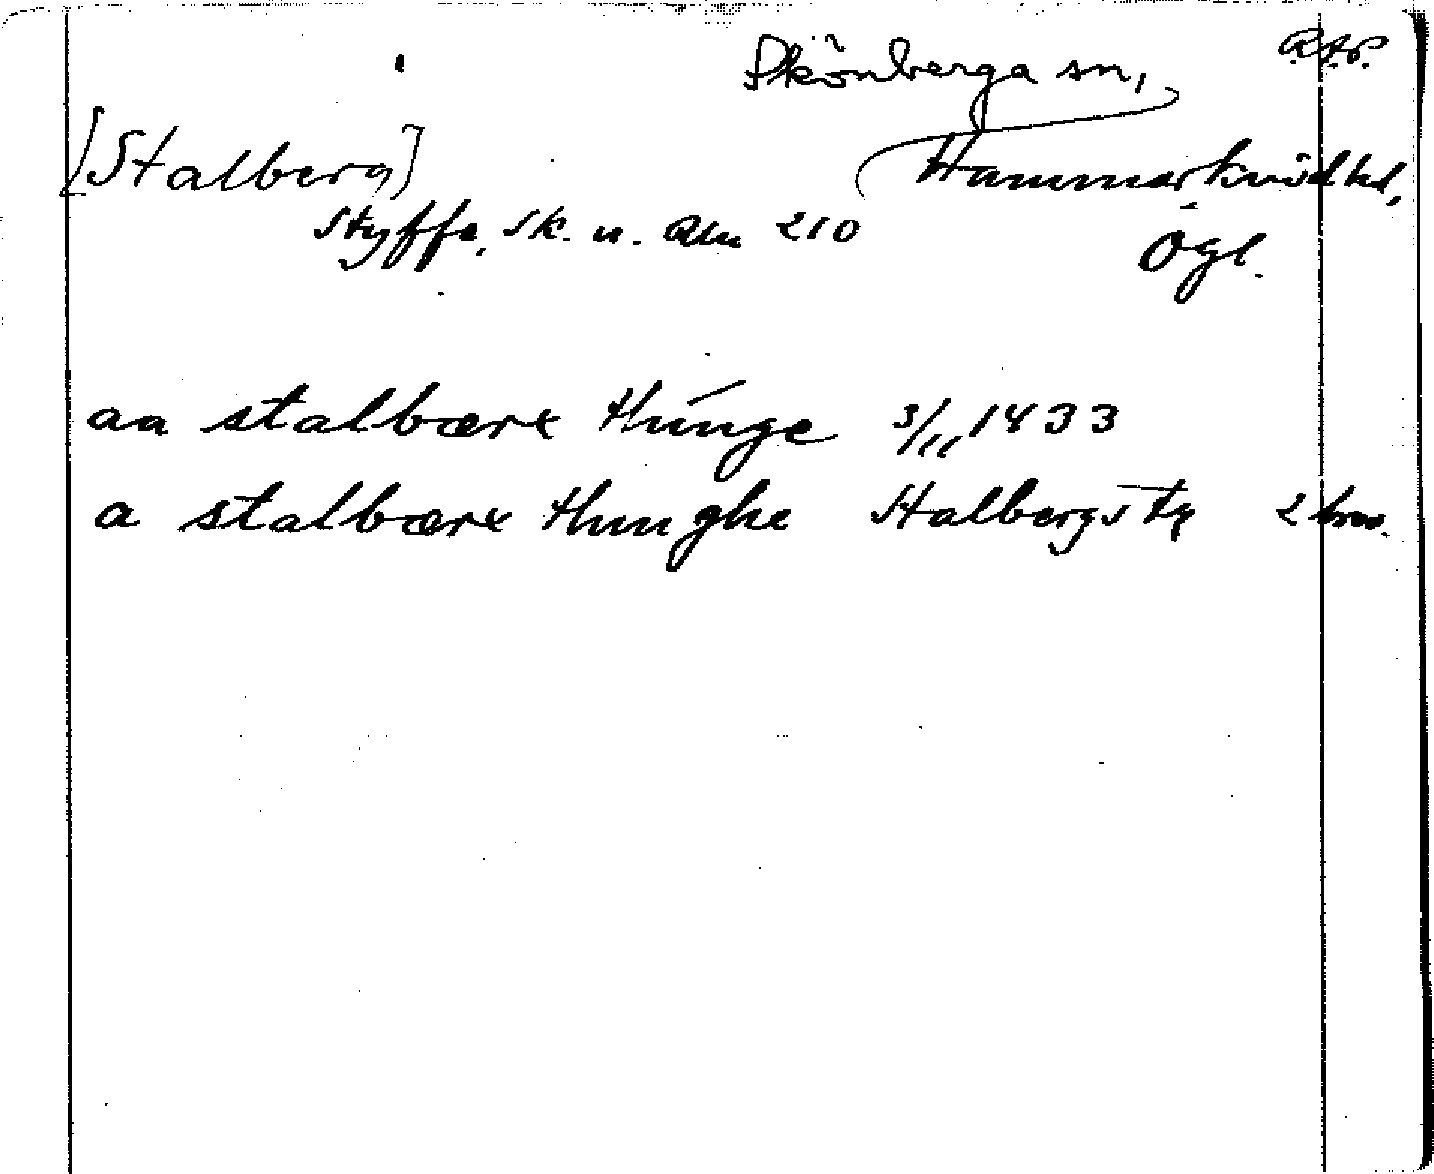 Skönberga sn,
R.A.P.
[Stalberg]
Hammarkindhd,
Styffe, Sk. u. Un 210
Ögl.
aa stalbærx thinge 3/11 1433
a stalbærx thunghe Stalbergstg 2 brev.